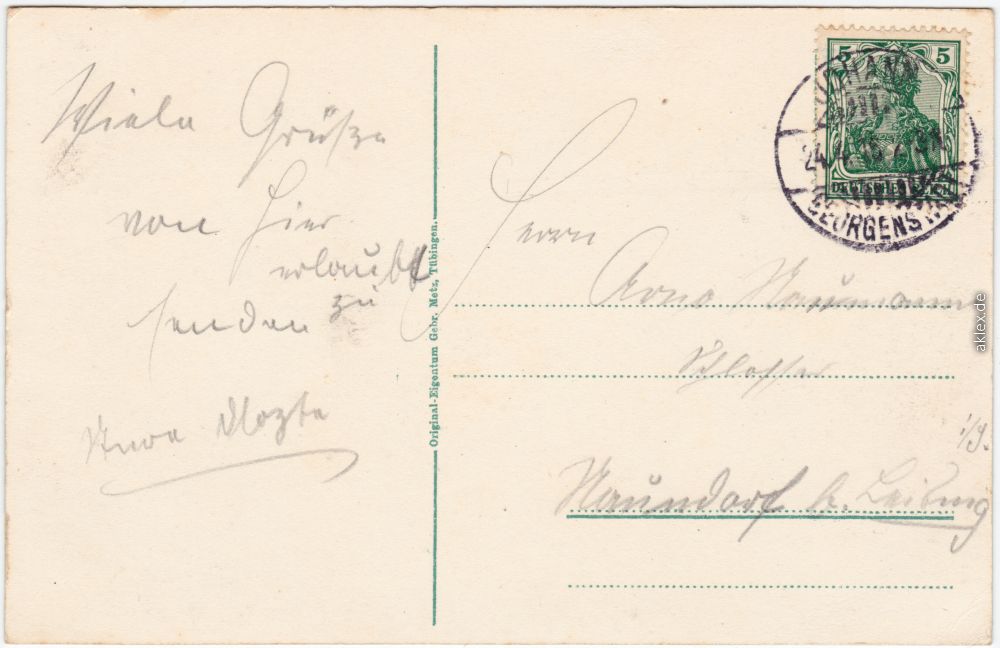 Viele Grüße
von hier
erlaubt
zu
senden
Original-Eigentum Gebr. Metz, Tübingen.
5 5
DEUTSCHES REICH
JOHANN
24.
GEORGENSTADT
Herrn
Arno Naumann
Schlosser
i/S.
Naundorf b.
aklex.de